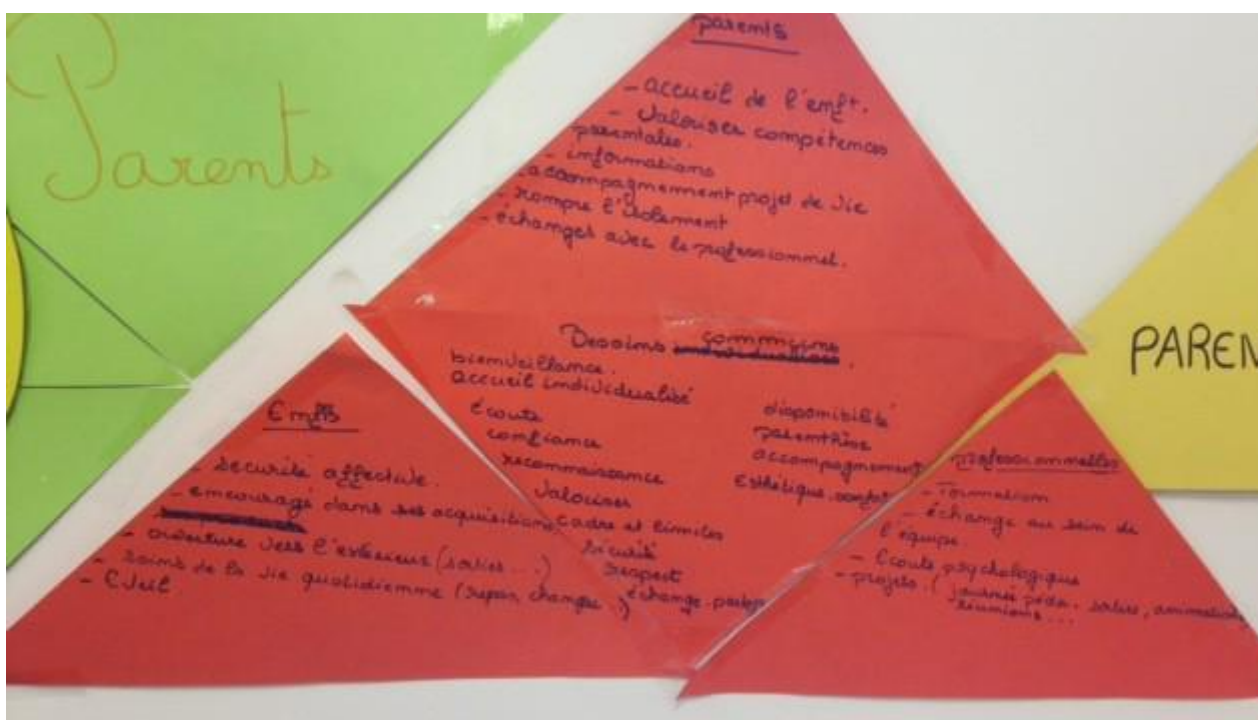 Parents
parents
- accueil de l'enft.
- Valoriser compétences
parentales.
- informations
- accompagnement projet de vie
- rompre l'isolement
- échanges avec le professionnel.
Besoins communs.
bienveillance.
accueil individualisé
écoute
confiance
reconnaissance
Valoriser
cadre et limites
sécurité
respect
échange.
disponibilité
parenthèse
accompagnement
Esthétique.
Enfts
- sécurité affective.
- encouragé dans ses acquisitions
- ouverture vers l'extérieur (sorties...)
- soins de la vie quotidienne (repas, changes..)
- Eveil
professionnelles
- Formation
- échange au sein de
l'équipe
- Ecoute psychologique
- projets. (journée péda. sorties, animations,
réunions...
PAREN